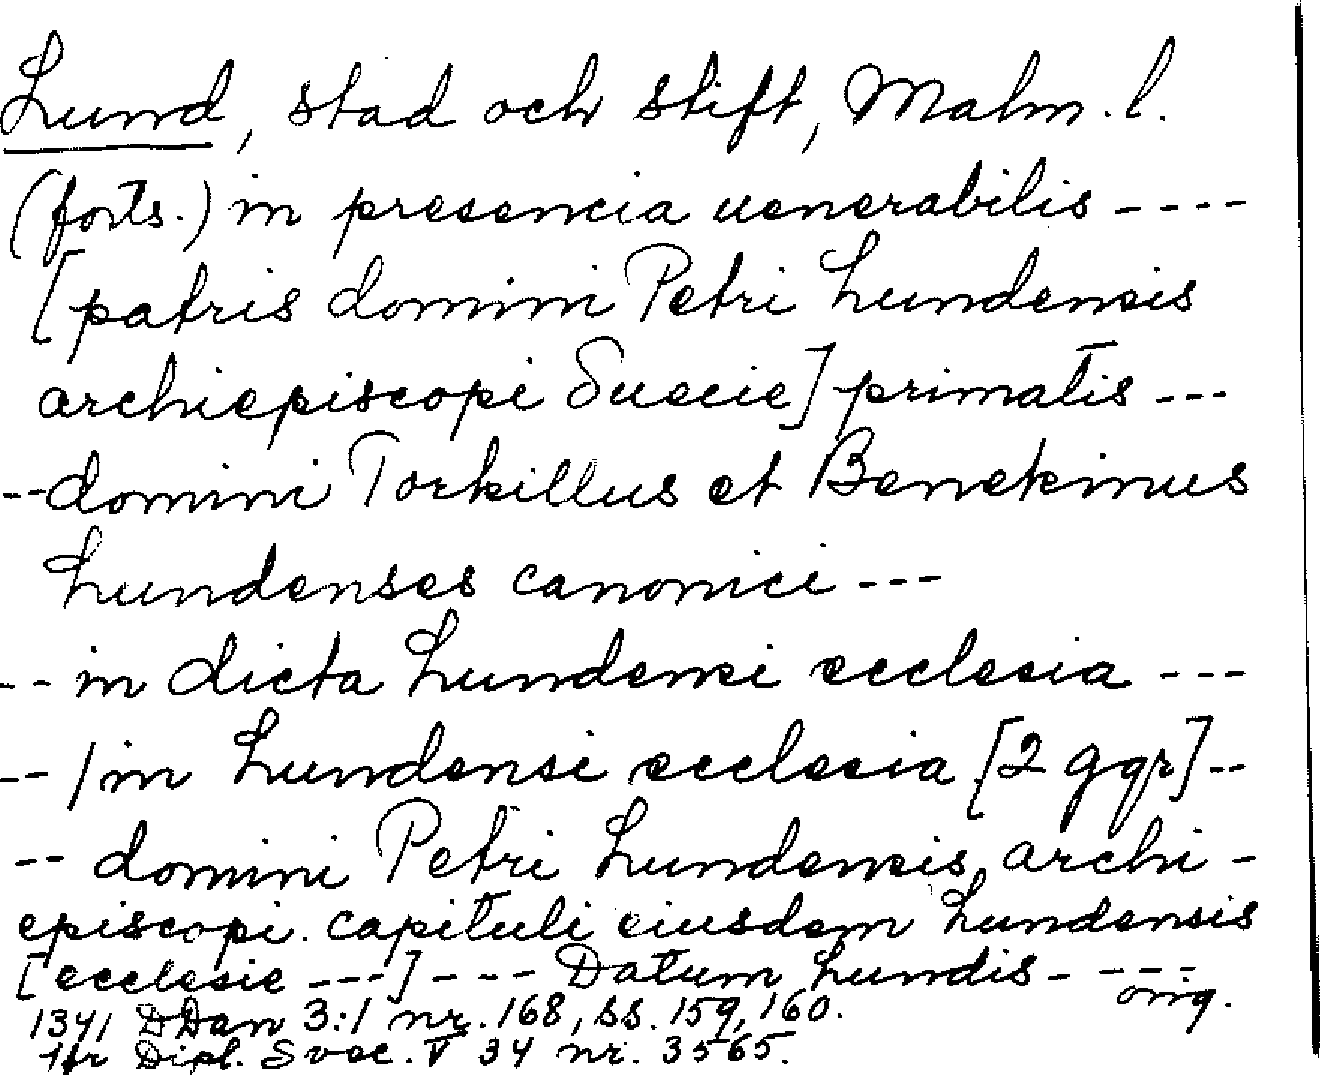 Lund, stad och stift, Malm. l.
(forts.) in presencia uenerabilis ----
[patris domini Petri Lundensis
archiepiscopi Suecie] primatis ---
-- domini Torkillus et Benekinus
Lundenses canonici ---
-- in dicta Lundensi ecclesia ---
-- / in Lundensi ecclesia [2 ggr] --
-- domini Petri Lundensis, archi-
episcopi. capituli eiusdem Lundensis
[ecclesie ---] ---- Datum Lundis - ---
orig.
1341 DDan 3:1 nr. 168, ss. 159, 160.
Dipl. Svec. V 34 nr. 3565.